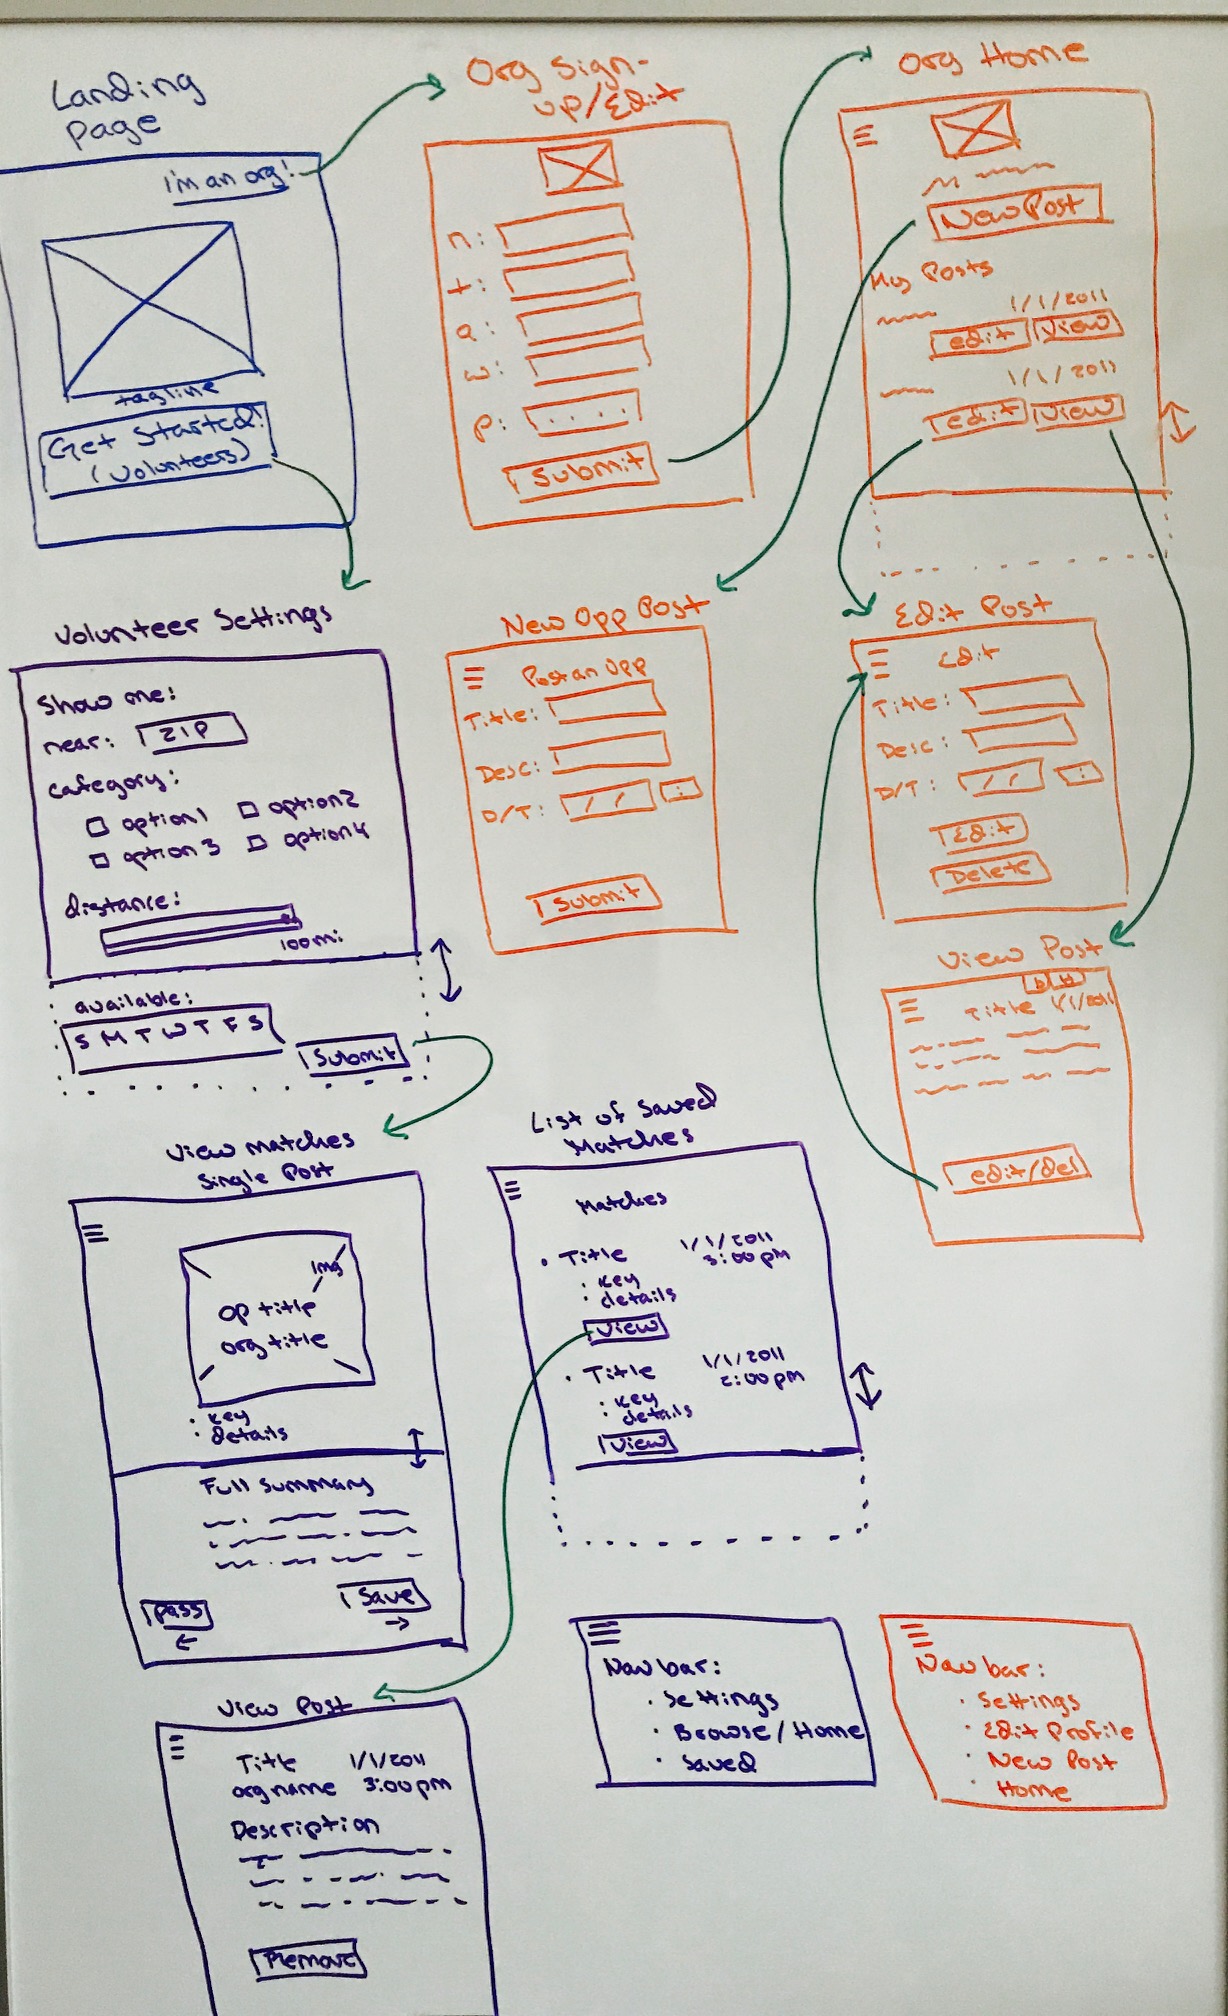 Landing
Page
I'm an org!
tagline
Get Started!
(volunteers)
Org Sign-
up/Edit
n:
t:
a:
w:
p: ....
Submit
Org Home
New Post
My Posts
1/1/2011
edit view
1/1/2011
edit view
Volunteer Settings
Show me:
near: ZIP
category:
option1 option2
option3 option4
distance:
100mi
available:
S M T W T F S
Submit
New Opp Post
Post an Opp
Title:
Desc:
D/T: / / :
Submit
Edit Post
Edit
Title:
Desc:
D/T: / / :
Edit
Delete
View Post
Title 1/1/2011
edit/del
View Matches
Single Post
img
op title
org title
· key
· details
Full Summary
pass
Save
← →
List of Saved
Matches
Matches
· Title 1/1/2011
3:00pm
· key
· details
view
· Title 1/1/2011
2:00pm
· key
· details
view
View Post
Title 1/1/2011
org name 3:00pm
Description
Remove
Nav bar:
· Settings
· Browse/Home
· Saved
Nav bar:
· Settings
· Edit Profile
· New Post
· Home